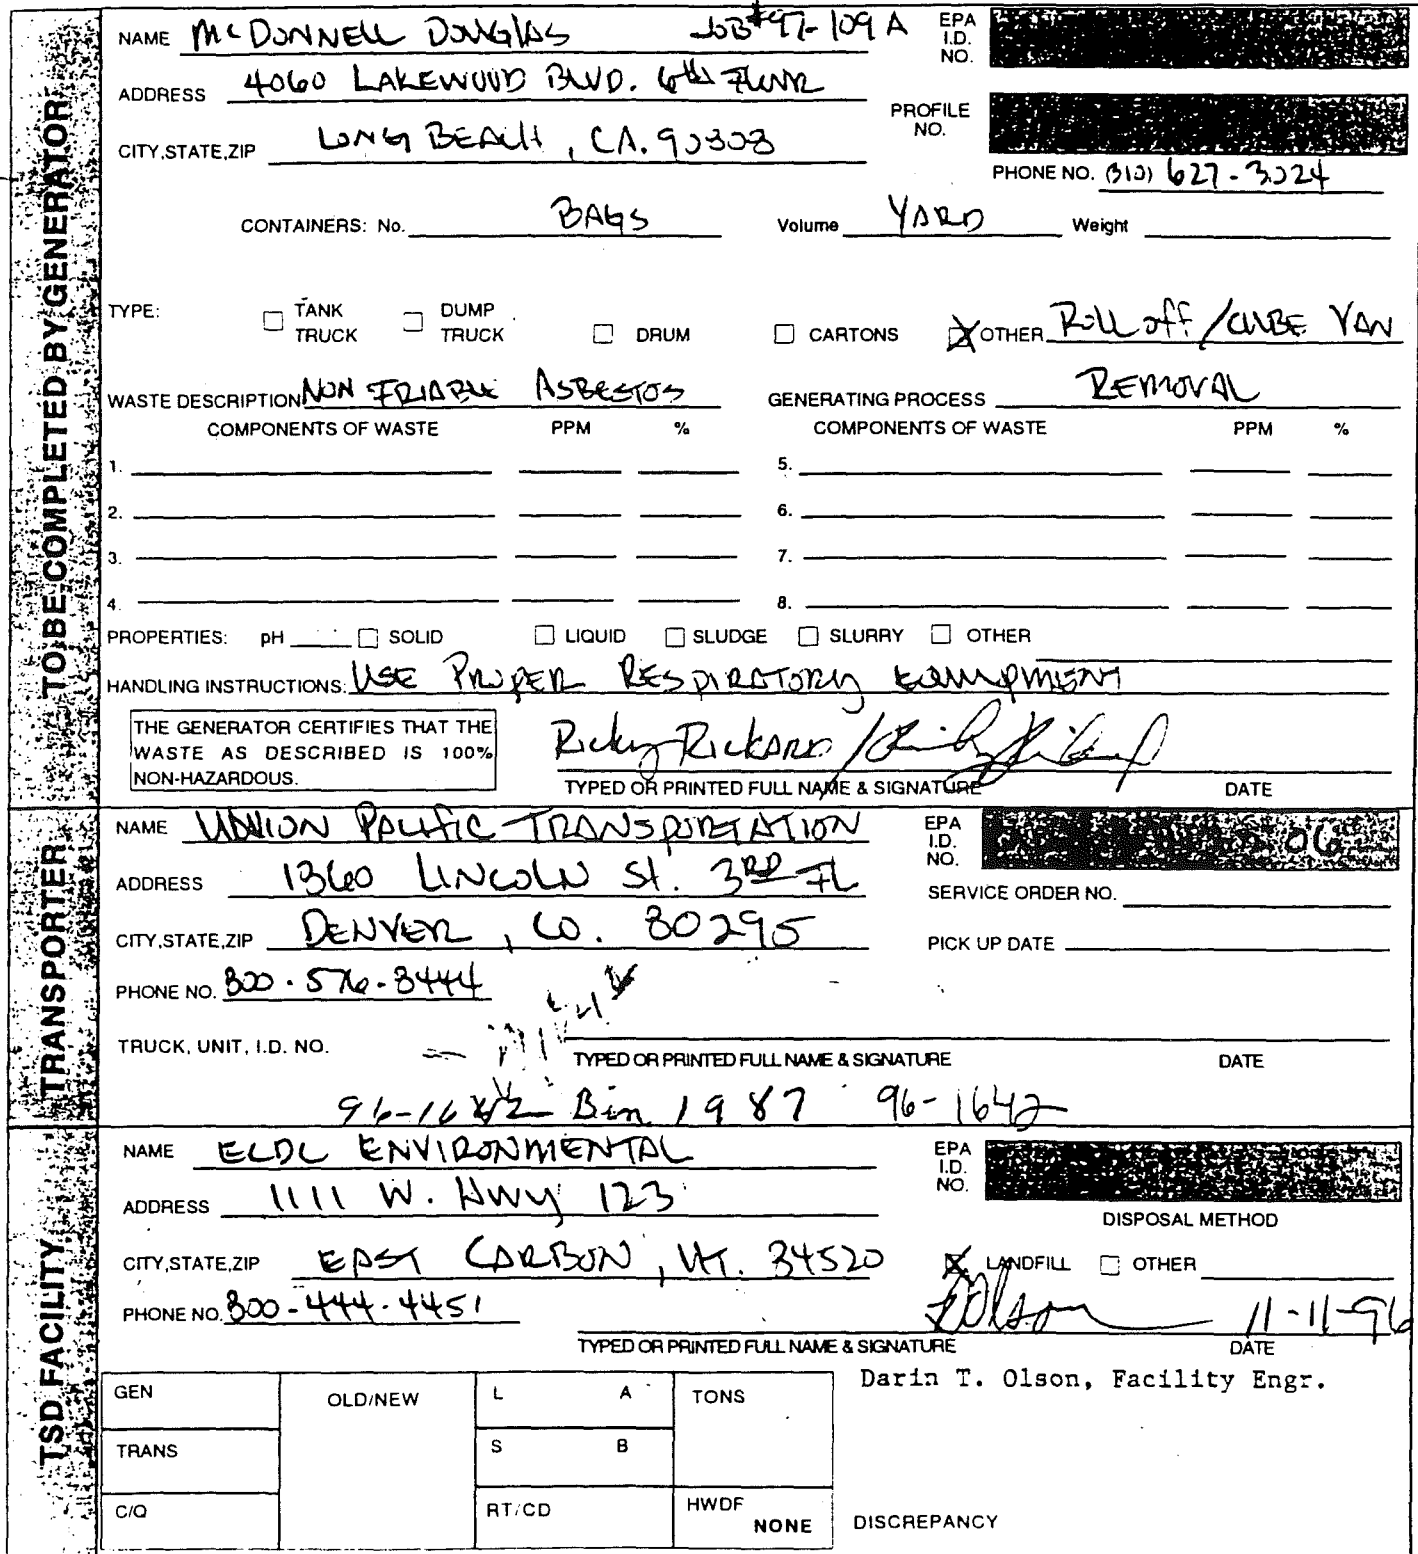 TO BE COMPLETED BY GENERATOR
NAME McDONNELL DOUGLAS JOB #97-109A
EPA I.D. NO.
ADDRESS 4060 LAKEWOOD BLVD. 6th FLOOR
PROFILE NO.
CITY,STATE,ZIP LONG BEACH, CA. 90808
PHONE NO. (310) 627-3024
CONTAINERS: No. BAGS Volume YARD Weight
TYPE: ☐ TANK TRUCK ☐ DUMP TRUCK ☐ DRUM ☐ CARTONS ☒ OTHER Roll off / CUBE VAN
WASTE DESCRIPTION NON FRIABLE ASBESTOS GENERATING PROCESS REMOVAL
COMPONENTS OF WASTE PPM % COMPONENTS OF WASTE PPM %
1. 5.
2. 6.
3. 7.
4. 8.
PROPERTIES: pH ☐ SOLID ☐ LIQUID ☐ SLUDGE ☐ SLURRY ☐ OTHER
HANDLING INSTRUCTIONS: USE PROPER RESPIRATORY EQUIPMENT
THE GENERATOR CERTIFIES THAT THE
WASTE AS DESCRIBED IS 100%
NON-HAZARDOUS.
Ricky Rickard /
TYPED OR PRINTED FULL NAME & SIGNATURE DATE
TRANSPORTER
NAME UNION PACIFIC TRANSPORTATION
EPA I.D. NO. 06
ADDRESS 1360 LINCOLN St. 3RD FL
SERVICE ORDER NO.
CITY,STATE,ZIP DENVER, CO. 80295
PICK UP DATE
PHONE NO. 800-576-8444
TRUCK, UNIT, I.D. NO.
TYPED OR PRINTED FULL NAME & SIGNATURE DATE
Bin 1987 96-1642
TSD FACILITY
NAME ECDC ENVIRONMENTAL
EPA I.D. NO.
ADDRESS 1111 W. HWY 123
DISPOSAL METHOD
CITY,STATE,ZIP EAST CARBON, UT. 84520
☒ LANDFILL ☐ OTHER
PHONE NO. 800-444-4451
DOlson 11-11-96
TYPED OR PRINTED FULL NAME & SIGNATURE DATE
Darin T. Olson, Facility Engr.
GEN OLD/NEW L A TONS
TRANS S B
C/Q RT/CD HWDF NONE DISCREPANCY